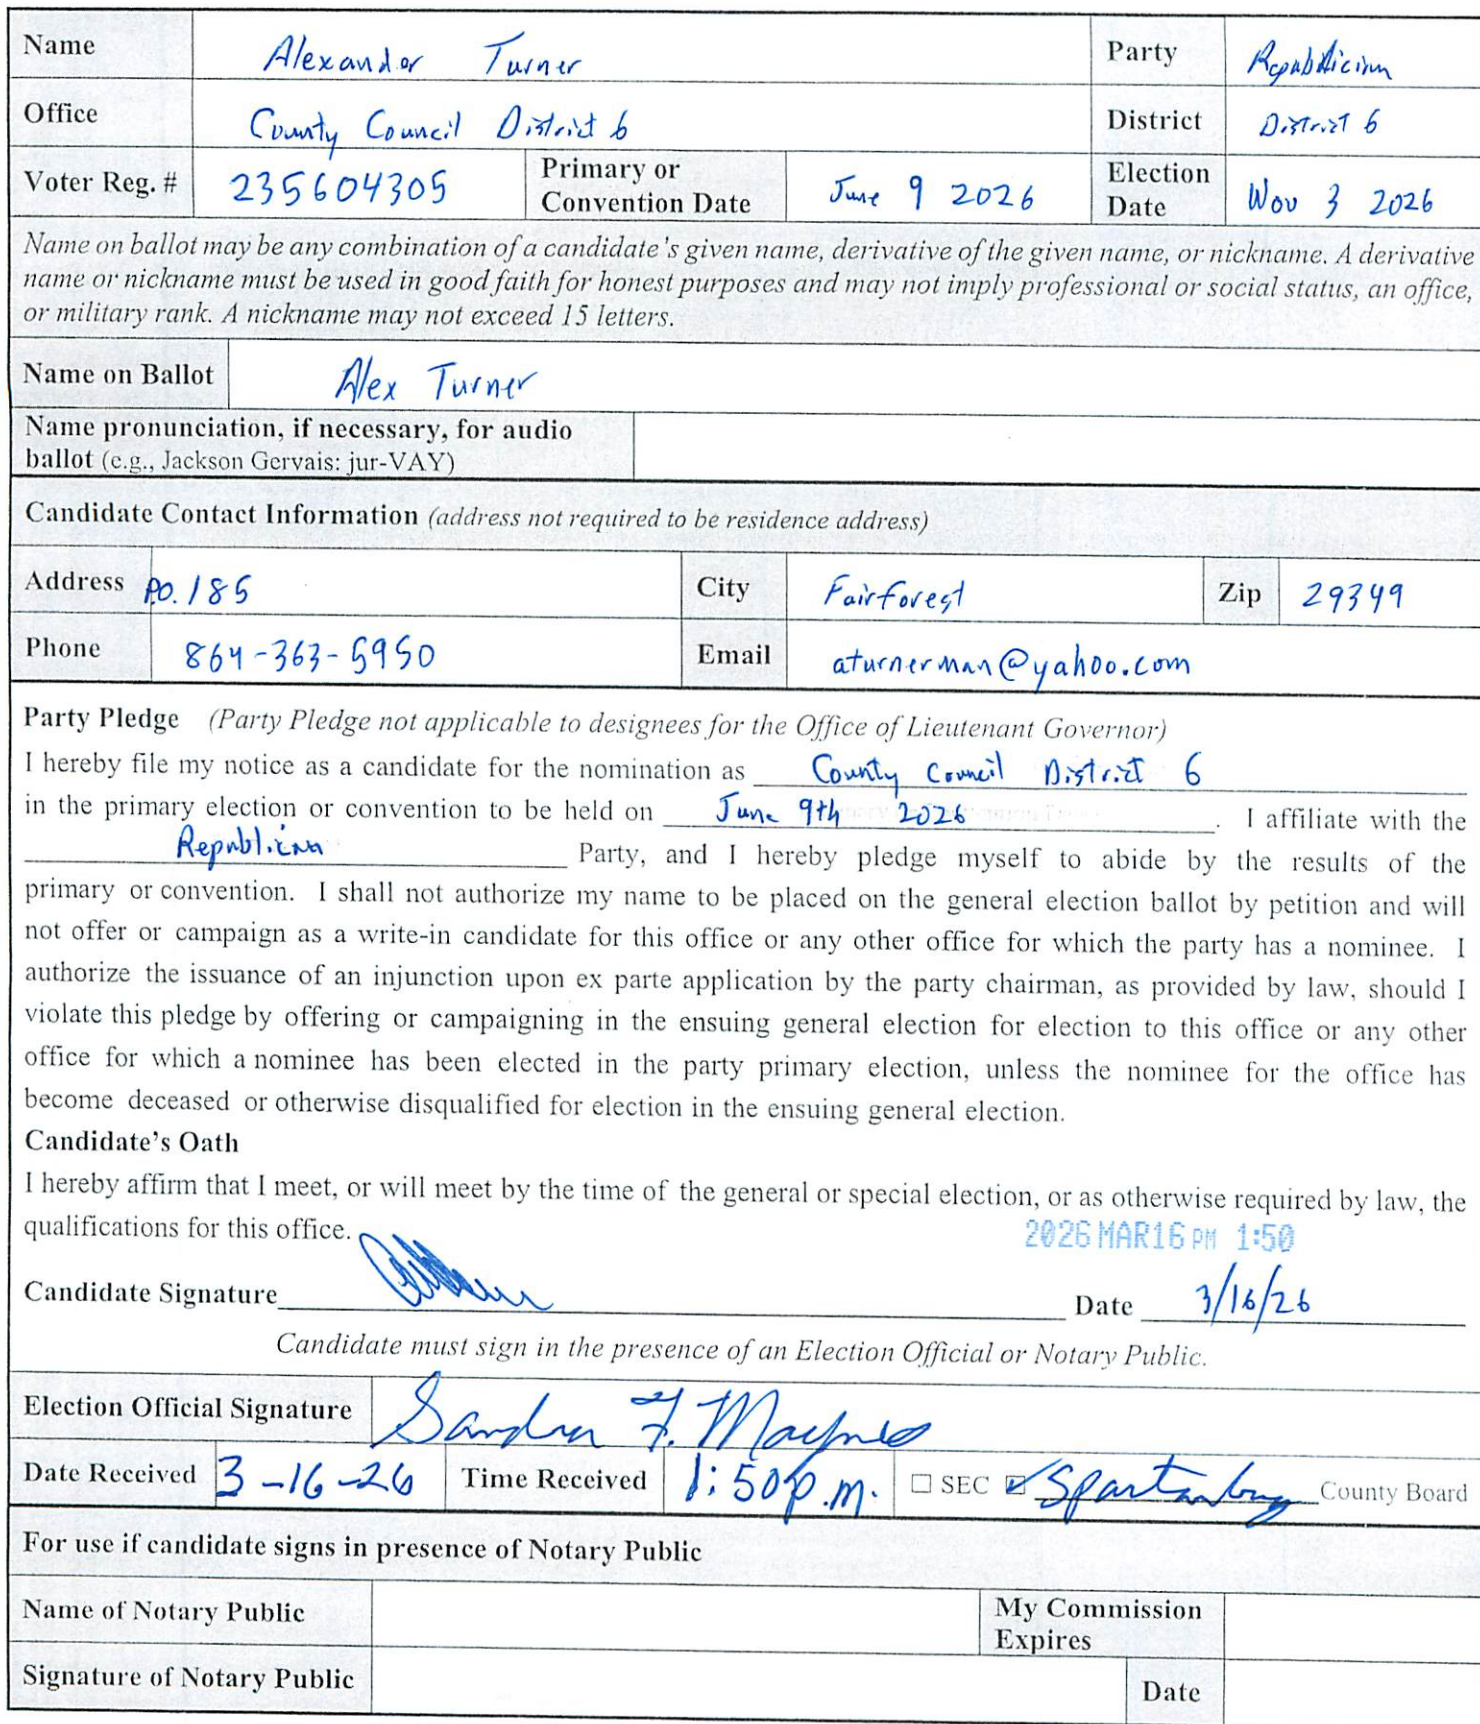 Name Alexander Turner Party Republician
Office County Council District 6 District District 6
Voter Reg. # 235604305 Primary or Convention Date June 9 2026 Election Date Nov 3 2026
Name on ballot may be any combination of a candidate's given name, derivative of the given name, or nickname. A derivative
name or nickname must be used in good faith for honest purposes and may not imply professional or social status, an office,
or military rank. A nickname may not exceed 15 letters.
Name on Ballot Alex Turner
Name pronunciation, if necessary, for audio
ballot (e.g., Jackson Gervais: jur-VAY)
Candidate Contact Information (address not required to be residence address)
Address P.O. 185 City Fairforest Zip 29349
Phone 864-363-5950 Email aturnerman@yahoo.com
Party Pledge (Party Pledge not applicable to designees for the Office of Lieutenant Governor)
I hereby file my notice as a candidate for the nomination as County Council District 6
in the primary election or convention to be held on June 9th 2026. I affiliate with the
Republican Party, and I hereby pledge myself to abide by the results of the
primary or convention. I shall not authorize my name to be placed on the general election ballot by petition and will
not offer or campaign as a write-in candidate for this office or any other office for which the party has a nominee. I
authorize the issuance of an injunction upon ex parte application by the party chairman, as provided by law, should I
violate this pledge by offering or campaigning in the ensuing general election for election to this office or any other
office for which a nominee has been elected in the party primary election, unless the nominee for the office has
become deceased or otherwise disqualified for election in the ensuing general election.
Candidate's Oath
I hereby affirm that I meet, or will meet by the time of the general or special election, or as otherwise required by law, the
qualifications for this office.
2026 MAR 16 PM 1:50
Candidate Signature Date 3/16/26
Candidate must sign in the presence of an Election Official or Notary Public.
Election Official Signature Sandra F.
Date Received 3-16-26 Time Received 1:50 p.m. SEC Spartanburg County Board
For use if candidate signs in presence of Notary Public
Name of Notary Public My Commission Expires
Signature of Notary Public Date